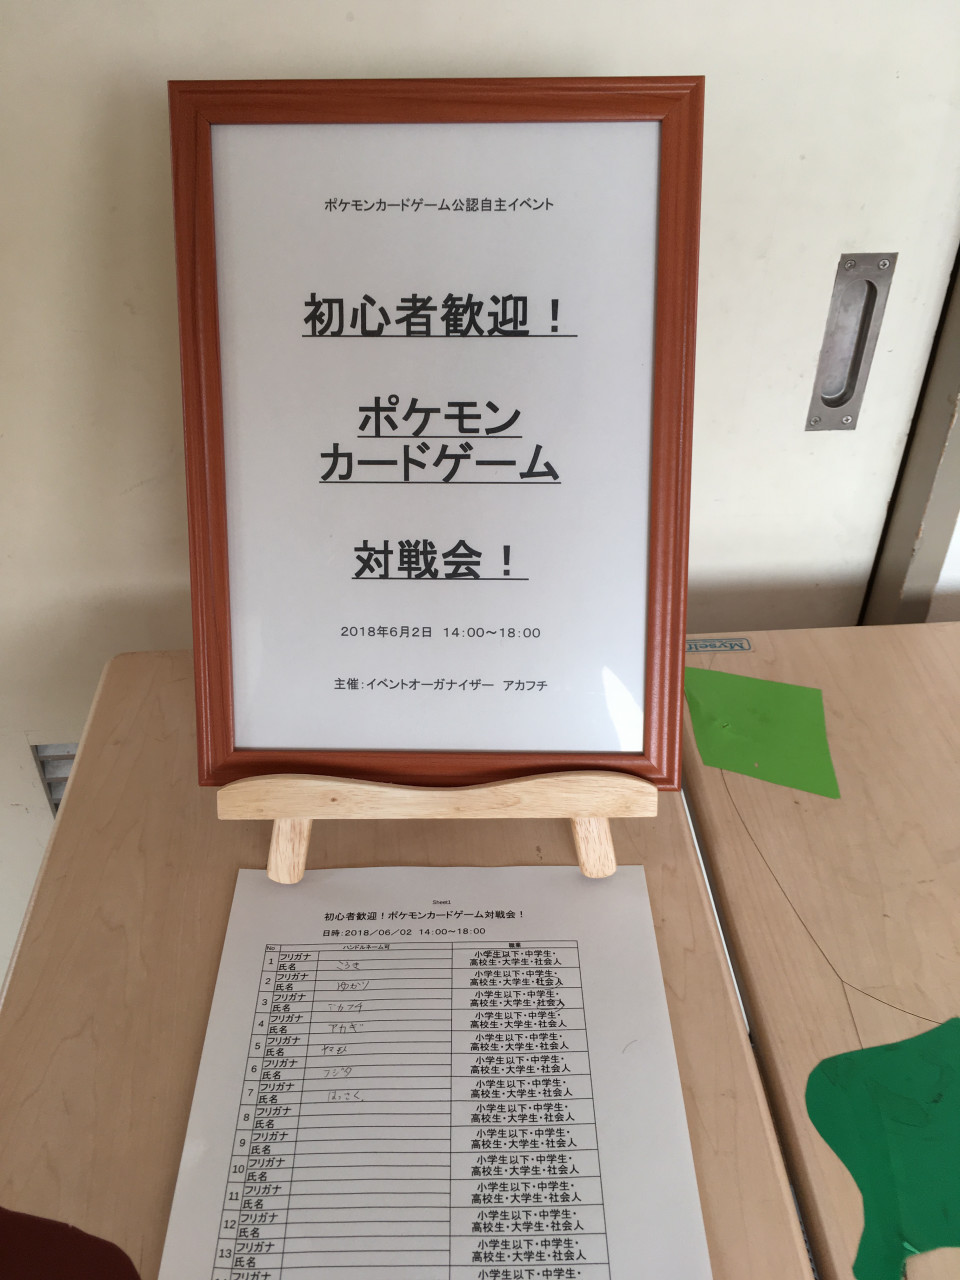 ポケモンカードゲーム公認自主イベント
初心者歓迎！
ポケモン
カードゲーム
対戦会！
2018年6月2日 14:00～18:00
主催:イベントオーガナイザー アカフチ
Myself
Sheet1
初心者歓迎！ポケモンカードゲーム対戦会！
日時:2018／06／02 14:00～18:00
No ハンドルネーム可 職業
1 フリガナ 小学生以下・中学生・
氏名 高校生・大学生・社会人
2 フリガナ 小学生以下・中学生・
氏名 ゆかり 高校生・大学生・社会人
3 フリガナ 小学生以下・中学生・
氏名 高校生・大学生・社会人
4 フリガナ 小学生以下・中学生・
氏名 アカギ 高校生・大学生・社会人
5 フリガナ 小学生以下・中学生・
氏名 高校生・大学生・社会人
6 フリガナ 小学生以下・中学生・
氏名 フジタ 高校生・大学生・社会人
7 フリガナ 小学生以下・中学生・
氏名 はっさく 高校生・大学生・社会人
8 フリガナ 小学生以下・中学生・
氏名 高校生・大学生・社会人
9 フリガナ 小学生以下・中学生・
氏名 高校生・大学生・社会人
10 フリガナ 小学生以下・中学生・
氏名 高校生・大学生・社会人
11 フリガナ 小学生以下・中学生・
氏名 高校生・大学生・社会人
12 フリガナ 小学生以下・中学生・
氏名 高校生・大学生・社会人
13 フリガナ 小学生以下・中学生・
氏名 高校生・大学生・社会人
フリガナ 小学生以下・中学生・